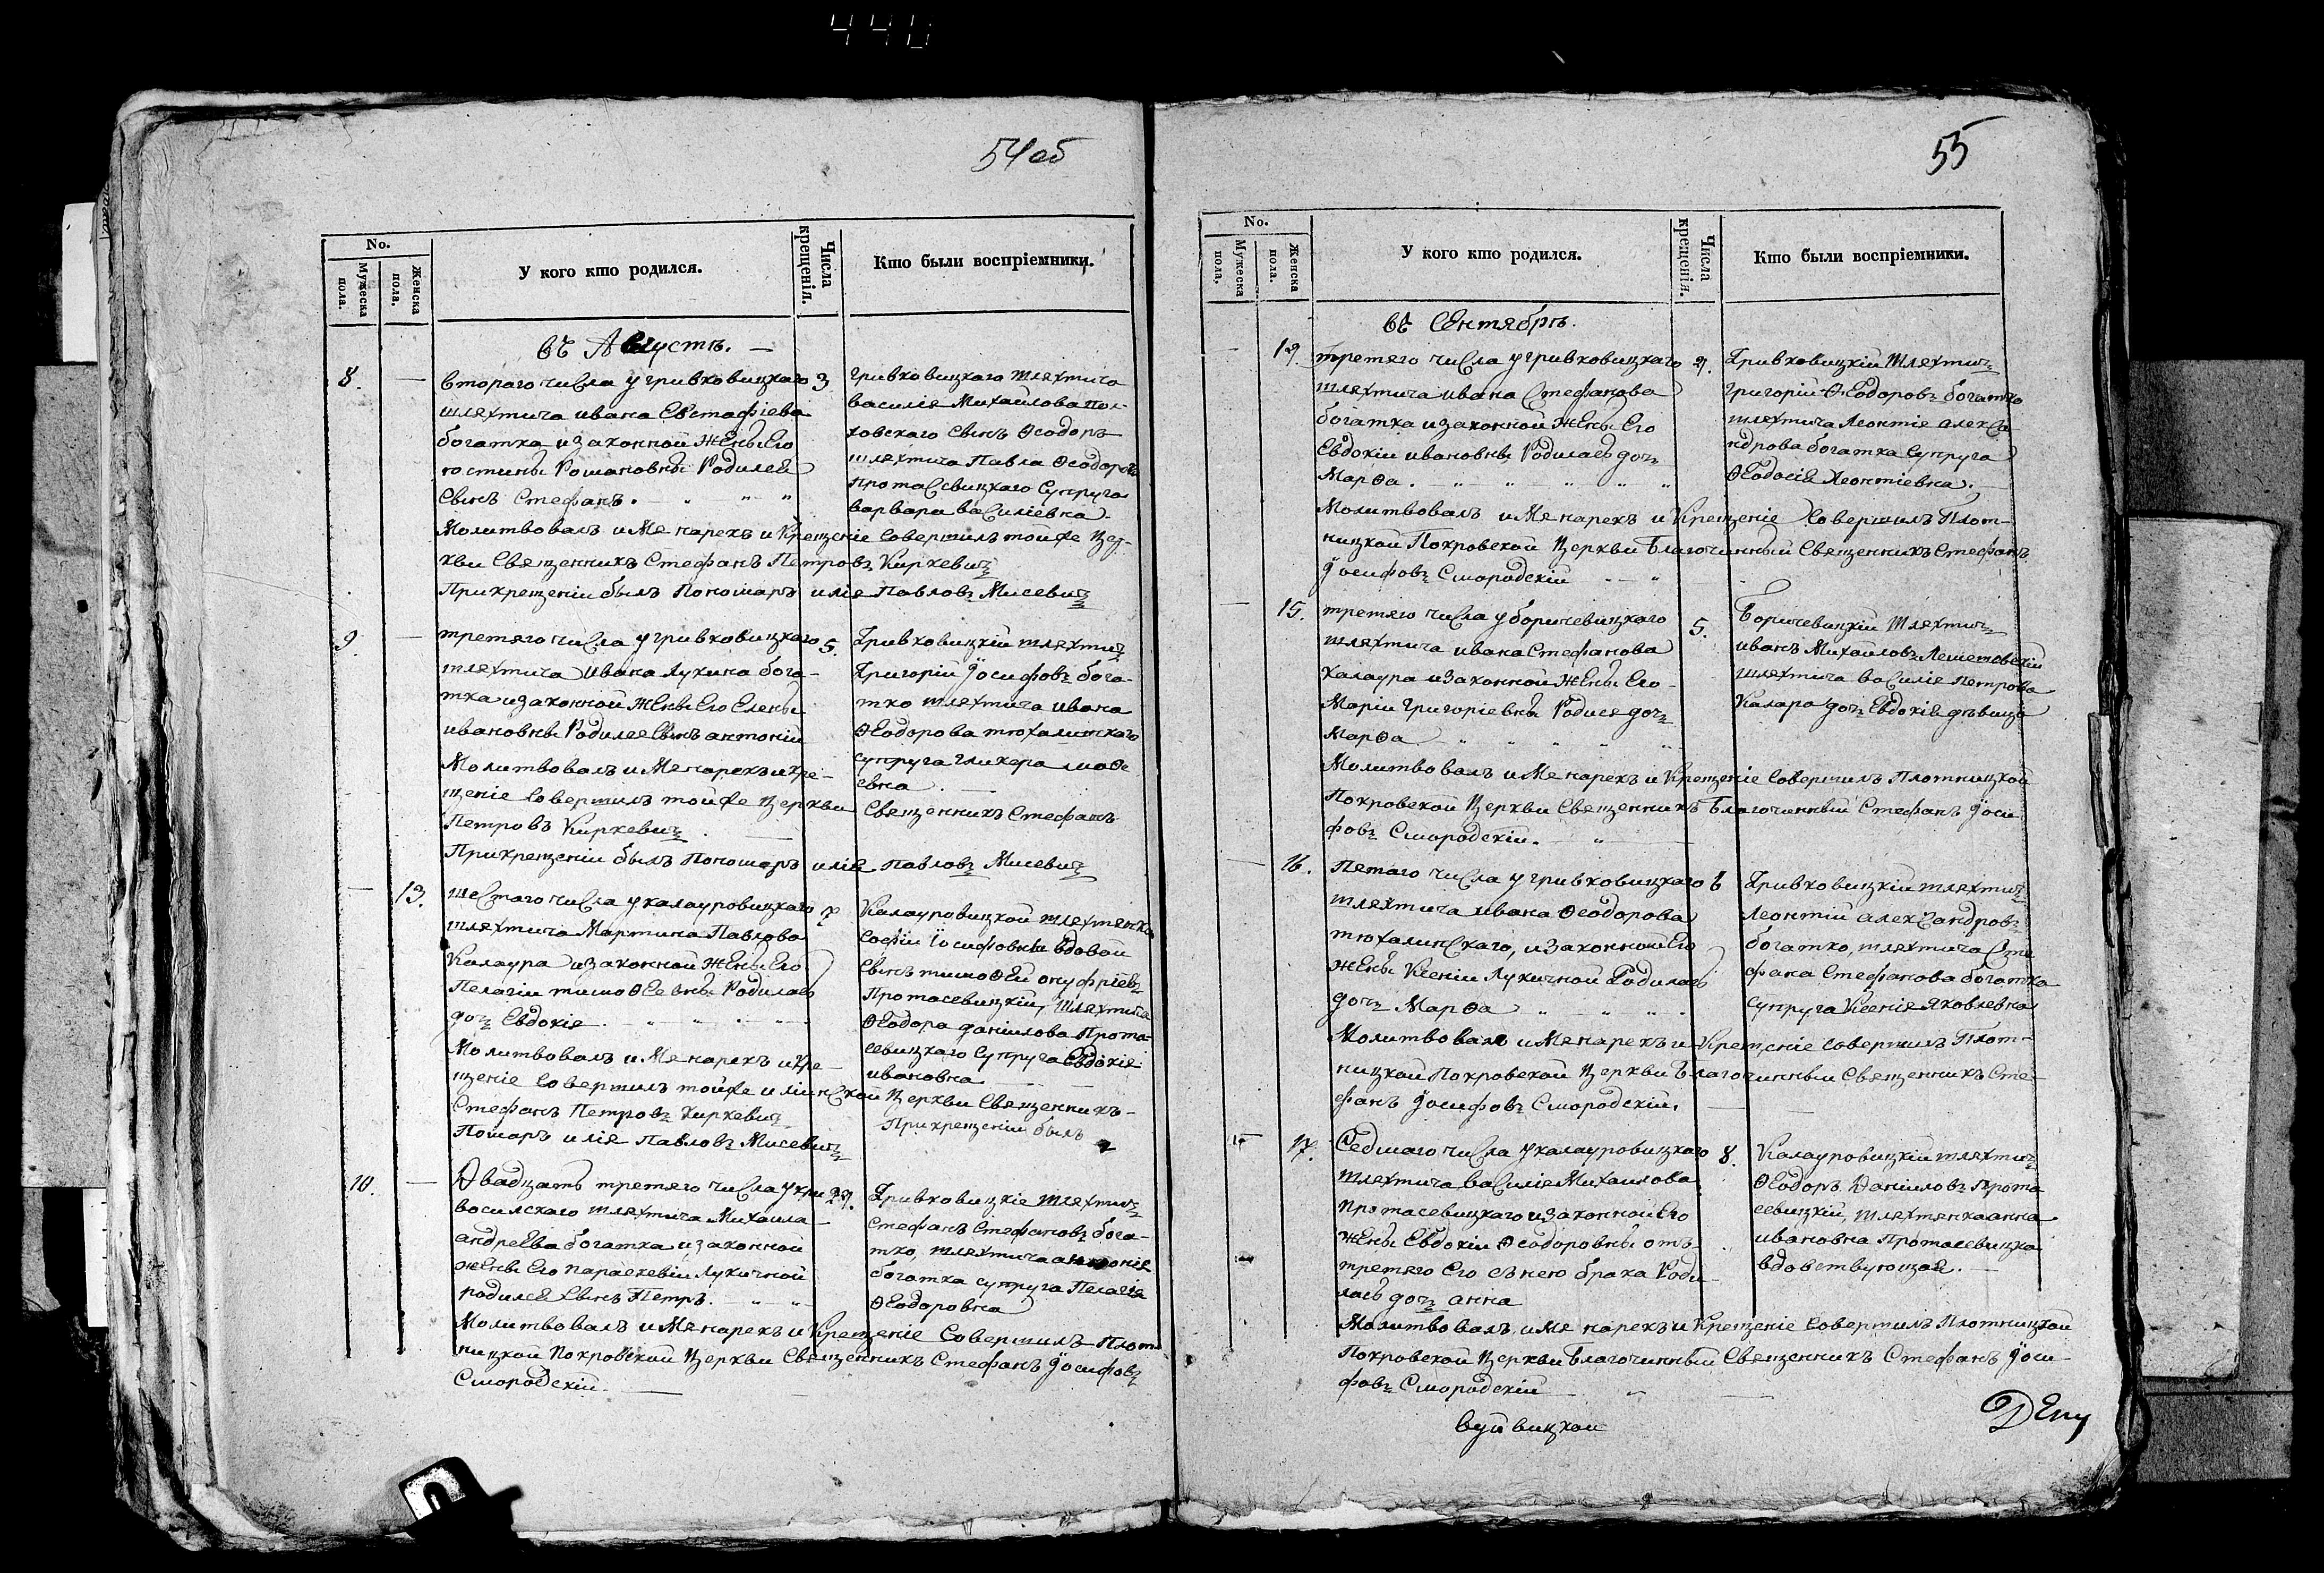 440
54 об
No.
Мужеска пола.
Женска пола.
У кого кто родился.
Числа крещенія.
Кто были воспріемники.
въ Августѣ.
8. Втораго числа у гривковицкаго 3
шляхтича ивана Евстафіева
богатка изаконной жены Его
юстины Романовны Родился
Сынъ Стефанъ.
гривковицкаго шляхтича
василія Михайлова
Сынъ Ѳеодоръ
шляхтича Павла Ѳеодорова
Протасевицкаго Супруга
варвара василіевна
Молитвовалъ имя нарекъ и Крещеніе Совершилъ тойже Цер-
кви Священникъ Стефанъ Петровъ Киркевичъ
Прикрещеніи былъ Пономаръ илія Павловъ Мисевичъ
9. третяго числа у гривковицкаго 5.
шляхтича ивана Лукина бога-
тка изаконной жены Его Елены
ивановны Родился Сынъ антоніи
Гривковицкій шляхтичъ
Григорій Іосифовъ бога-
тко шляхтича ивана
Ѳеодорова тюхалинскаго
супруга гликера
евна
Молитвовалъ имя нарекъ икре-
щеніе Совершилъ тойже Церкви Священникъ Стефанъ
Петровъ Киркевичъ.
Прикрещеніи былъ Пономаръ илія Павловъ Мисевичъ
13. шестаго числа у калауровицкаго 7
шляхтича Мартина Павлова
Калаура изаконной жены Его
Пелагіи тимоѲеевны Родилась
дочъ Евдокія
Калауровицкой шляхтянки
Софіи Іосифовны вдовой
Сынъ тимоѲей онуфріевъ
Протасевицкій, шляхтича
Ѳеодора даніилова Прота-
севицкаго Супруга Евдокія
ивановна
Молитвовалъ имя нарекъ икре-
щеніе Совершилъ тойже илинской Церкви Священникъ
Стефанъ Петровъ Киркевичъ Прикрещеніи былъ
Помаръ илія Павловъ Мисевичъ
10. Двадцать третяго числа у кри 27.
восилскаго шляхтича Михаила
андреева богатка изаконной
жены Его параскевіи Лукичной
родился Сынъ Петръ.
Гривковицкіе шляхтичъ
Стефанъ Стефановъ бога-
тко, шляхтича антонія
богатка супруга Пелагія
Ѳеодоровна
Молитвовалъ имя нарекъ и Крещеніе Совершилъ Плот
ницкой Покровской Церкви Священникъ Стефанъ Іосифовъ
Смородскій.
55
No.
Мужеска пола.
Женска пола.
У кого кто родился.
Числа крещенія.
Кто были воспріемники.
въ Сентябрѣ.
третяго числа у гривковицкаго
шляхтича ивана Стефанова
богатка изаконной жены Его
Евдокіи ивановны Родилась дочъ
МарѲа.
Гривковицкій шляхтичъ
григорій Ѳеодоровъ богатко
шляхтича леонтія алекса-
ндрова богатка Супруга
Ѳеодосія Леонтіевна.
Молитвовалъ имя нарекъ и Крещеніе Совершилъ Плот-
ницкой Покровской Церкви Благочинный Священникъ Стефанъ
Іосифовъ Смородскій
15. третяго числа у боричевицкаго 5.
шляхтича ивана Стефанова
Калаура изаконной жены Его
Маріи григоріевны Родися дочъ
МарѲа
Боричевицкіи шляхтичъ
иванъ Михаиловъ
шляхтича василія петрова
Калара дочъ Евдокія дѣвица
Молитвовалъ имя нарекъ и Крещеніе Совершилъ Плотницкой
Покровской Церкви Священникъ Благочинный Стефанъ Іоси
фовъ Смородскіи.
16. Пятаго числа у гривковицкаго 6
шляхтича ивана Ѳеодорова
тюхалинскаго, изаконной Его
жены Ксеніи Лукичной Родилась
дочъ МарѲа
Гривковицкіи шляхтичъ
Леонтій александровъ
богатко, шляхтича Сте
фана Стефанова богатка
супруга Ксенія яковлевна
Молитвовалъ имя нарекъ и Крещеніе совершилъ Плот-
ницкой Покровской Церкви Благочинныи Священникъ Сте-
фанъ Іосифовъ Смородскій.
17. Седмаго числа у калауровицкаго 8.
шляхтича василія Михаилова
Протасевицкаго изаконной Его
жены Евдокіи Ѳеодоровны отъ
третяго Его съ нею брака Роди-
лась дочъ анна
Калауровицкіи шляхтичъ
Ѳеодоръ Даніиловъ Прота
севицкій, шляхтянка анна
ивановна Протасевицка
вдовствующая.
Молитвовалъ имя нарекъ и Крещеніе Совершилъ Плотницкой
Покровской Церкви Благочинный Священникъ Стефанъ Іоси-
фовъ Смородскій
вуйвицкои
Депу